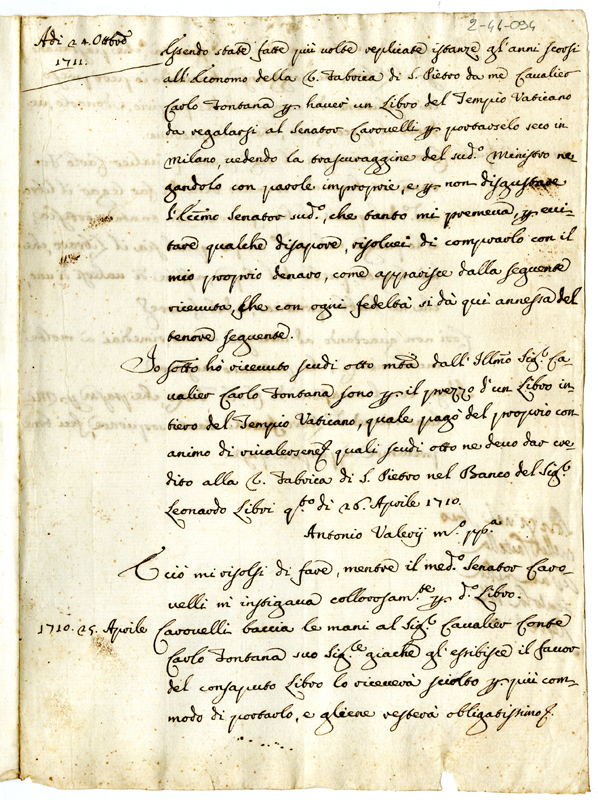 2-44-094
Adi 24. Ottobre
1711.
Essendo state fatte più volte replicate istanze gl'anni scorsi
all'Economo della R. Fabrica di S. Pietro da me Cavalier
Carlo Fontana p. haver un Libro del Tempio Vaticano
da regalarsi al Senator Carovelli p. portarselo seco in
Milano, vedendo la trascuraggine del sud.º Ministro ne-
gandolo con parole improprie, e p. non disgustare
l'Ill.mo Senator sud.º, che tanto mi premeva, p. evi-
tare qualche disapore, risolvei di comprarlo con il
mio proprio denaro, come apparisce dalla seguente
ricevuta, che con ogni fedeltà si dà quì annessa del
tenore seguente.
Io sotto hò ricevuto scudi otto mta dall'Illmo Sig.r Ca-
valier Carlo Fontana sono p. il prezzo d'un Libro in-
tiero del Tempio Vaticano, quale pagò del proprio con
animo di rivalersene quali scudi otto ne devo dar cre-
dito alla R. Fabrica di S. Pietro nel Banco del Sig.r
Leonardo Libri q.to di 26. Aprile 1710.
Antonio Valerij m.º pp.a
E ciò mi risolsi di fare, mentre il med.º Senator Caro-
velli m'instigava collorosam.te p. d.º Libro.
1710. 25. Aprile Carovelli baccia le mani al Sig.r Cavalier Conte
Carlo Fontana suo Sig.re giache gl'essibisce il favor
del consaputo Libro lo riceverà sciolto p. più com-
modo di portarlo, e gliene resterà obligatissimo